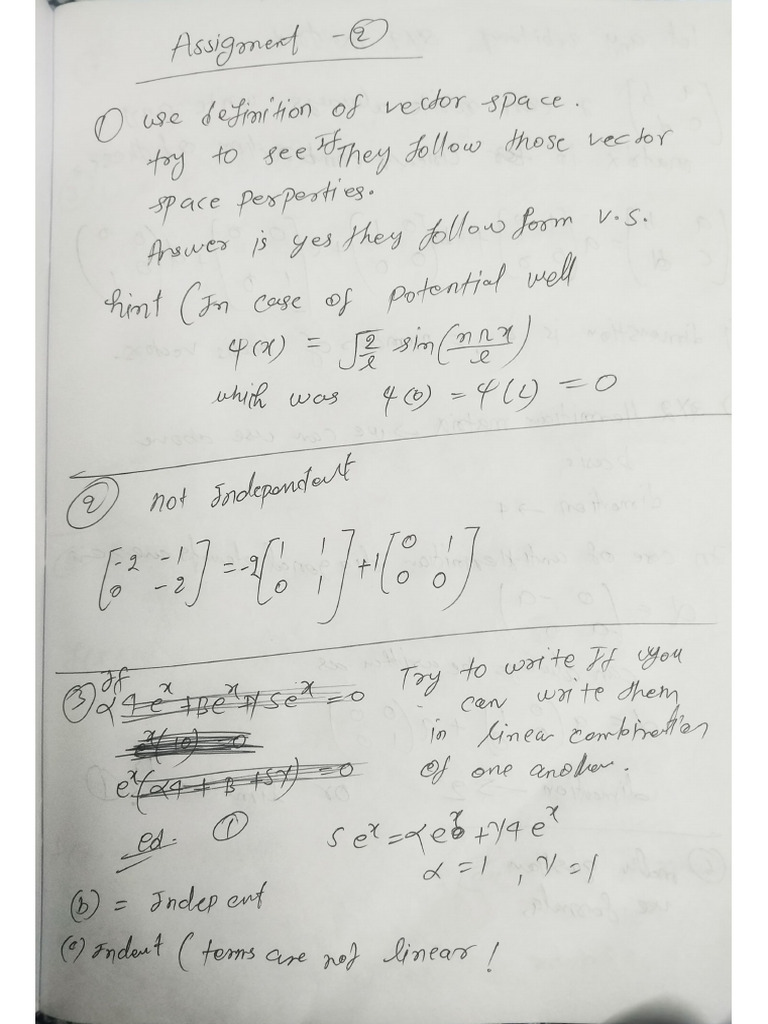 Assigment - ②
① use definition of vector space.
try to see If They follow those vector
space perperties.
Answer is yes they follow form v.s.
hint (In case of potential well
ψ(x) = √2/l sin(nπx/l)
which was ψ(0) = ψ(L) = 0
② not Independent
[-2 -1; 0 -2] = -2[1 1; 0 1] + 1[0 1; 0 0]
③ If
α4e^x + Be^x + γ5e^x = 0
e^x(10) = 0
e^x(α4 + B + 5γ) = 0
Try to write If you
can write them
in linear combination
of one another.
ed. ①
5e^x = αe^x + γ4e^x
α = 1, γ = 1
(b) = Indep ent
(c) Indent ( terms are not linear !